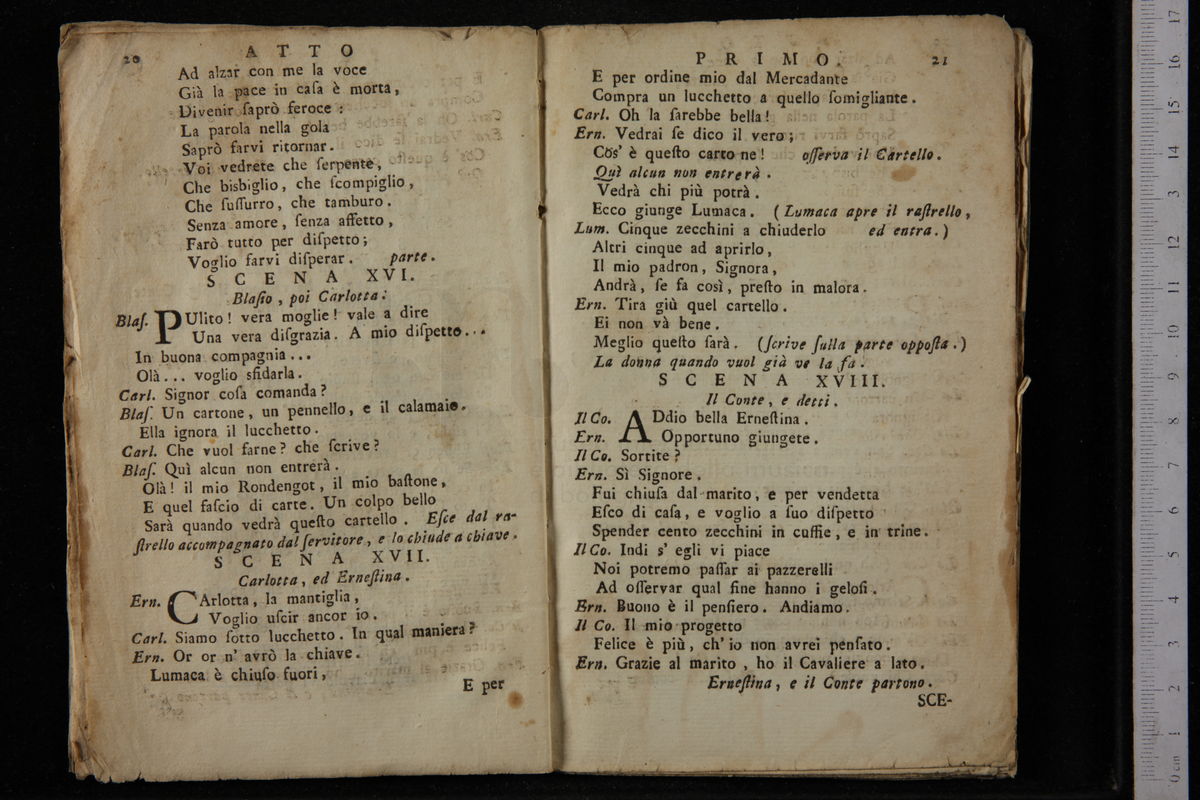 20
A T T O
Ad alzar con me la voce
Già la pace in caſa è morta,
Divenir ſaprò feroce :
La parola nella gola
Saprò farvi ritornar.
Voi vedrete che ſerpente,
Che bisbiglio, che ſcompiglio,
Che ſuſſurro, che tamburo.
Senza amore, ſenza affetto,
Farò tutto per diſpetto;
Voglio farvi diſperar. parte.
S C E N A XVI.
Blaſio, poi Carlotta.
Blaſ. PUlito! vera moglie! vale a dire
Una vera diſgrazia. A mio diſpetto...
In buona compagnia...
Olà... voglio sfidarla.
Carl. Signor coſa comanda?
Blaſ. Un cartone, un pennello, e il calamaio.
Ella ignora il lucchetto.
Carl. Che vuol farne? che ſcrive?
Blaſ. Quì alcun non entrerà.
Olà! il mio Rondengot, il mio baſtone,
E quel faſcio di carte. Un colpo bello
Sarà quando vedrà queſto cartello. Eſce dal ra-
ſtrello accompagnato dal ſervitore, e lo chiude a chiave.
S C E N A XVII.
Carlotta, ed Erneſtina.
Ern. CArlotta, la mantiglia,
Voglio uſcir ancor io.
Carl. Siamo ſotto lucchetto. In qual maniera?
Ern. Or or n' avrò la chiave.
Lumaca è chiuſo fuori,
E per
P R I M O.
21
E per ordine mio dal Mercadante
Compra un lucchetto a quello ſomigliante.
Carl. Oh la ſarebbe bella!
Ern. Vedrai ſe dico il vero;
Cos' è queſto carto ne! oſſerva il Cartello.
Quì alcun non entrerà.
Vedrà chi più potrà.
Ecco giunge Lumaca. (Lumaca apre il raſtrello,
Lum. Cinque zecchini a chiuderlo ed entra.)
Altri cinque ad aprirlo,
Il mio padron, Signora,
Andrà, ſe fa così, preſto in malora.
Ern. Tira giù quel cartello.
Ei non và bene.
Meglio queſto ſarà. (ſcrive ſulla parte oppoſta.)
La donna quando vuol già ve la fa.
S C E N A XVIII.
Il Conte, e detti.
Il Co. ADdio bella Erneſtina.
Ern. Opportuno giungete.
Il Co. Sortite?
Ern. Sì Signore.
Fui chiuſa dal marito, e per vendetta
Eſco di caſa, e voglio a ſuo diſpetto
Spender cento zecchini in cuffie, e in trine.
Il Co. Indi s' egli vi piace
Noi potremo paſſar ai pazzerelli
Ad oſſervar qual fine hanno i geloſi.
Ern. Buono è il penſiero. Andiamo.
Il Co. Il mio progetto
Felice è più, ch' io non avrei penſato.
Ern. Grazie al marito, ho il Cavaliere a lato.
Erneſtina, e il Conte partono.
SCE-
0 cm 1 2 3 4 5 6 7 8 9 10 11 12 13 14 15 16 17